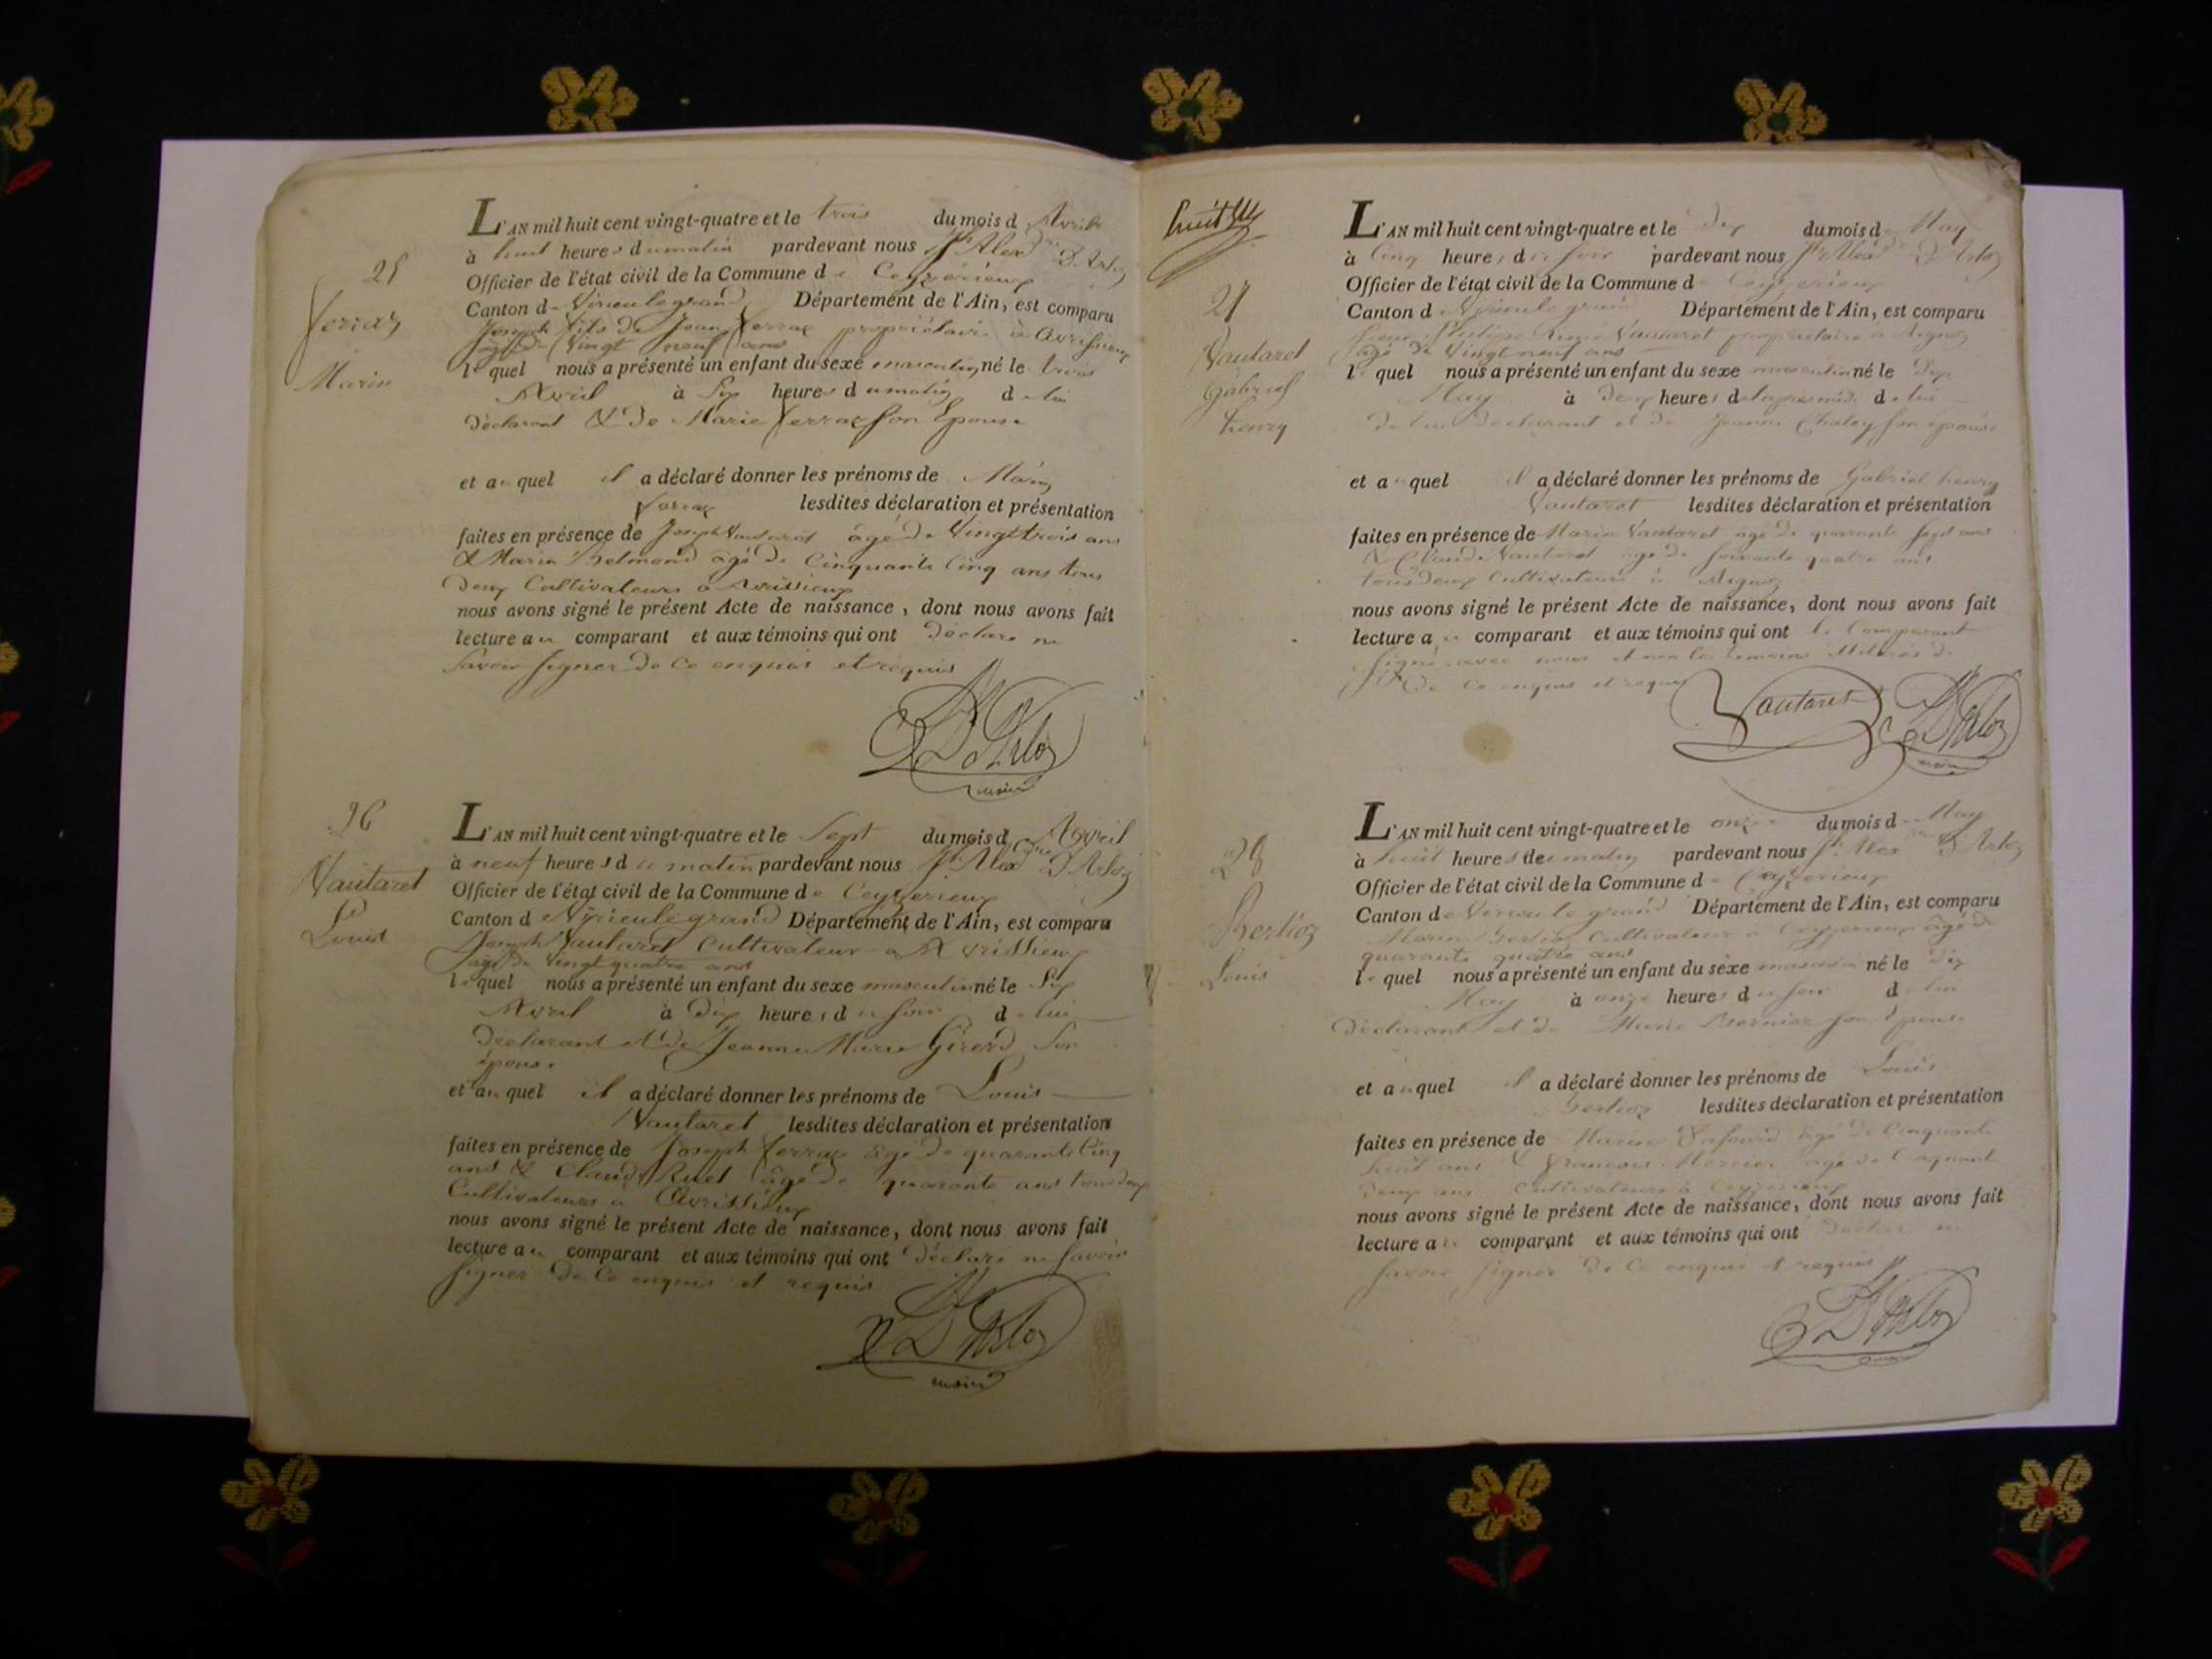 25
Ferraz
Marin
L'AN mil huit cent vingt-quatre et le trois du mois d'Avril
à huit heures du matin pardevant nous Alexdre D'Arloz
Officier de l'état civil de la Commune de Ceyzerieux
Canton de Virieulegrand Département de l'Ain, est comparu
Joseph fils de Jean Ferraz propriétaire à Avrissieux
âgé de Vingt neuf ans
lequel nous a présenté un enfant du sexe masculin né le trois
Avril à Six heures du matin de lui
déclarant & de Marie Ferraz son Epouse
et auquel il a déclaré donner les prénoms de Marin
Ferraz lesdites déclaration et présentation
faites en présence de Joseph Vautaret âgé de Vingt trois ans
& Marin Belmond âgé de Cinquante Cinq ans tous
deux Cultivateurs à Avrissieux
nous avons signé le présent Acte de naissance, dont nous avons fait
lecture au comparant et aux témoins qui ont déclaré ne
Savoir signer de ce enquis et requis
D'Arloz
maire
26
Vautaret
Louis
L'AN mil huit cent vingt-quatre et le Sept du mois d'Avril
à neuf heures du matin pardevant nous Alexdre D'Arloz
Officier de l'état civil de la Commune de Ceyzerieux
Canton de Virieulegrand Département de l'Ain, est comparu
Joseph Vautaret Cultivateur à Avrissieux
âgé de Vingt quatre ans
lequel nous a présenté un enfant du sexe masculin né le Six
Avril à dix heures du soir de lui
déclarant et de Jeanne Marie Girerd Son
épouse
et auquel il a déclaré donner les prénoms de Louis
Vautaret lesdites déclaration et présentation
faites en présence de Joseph Ferraz âgé de quarante Cinq
ans & Claude Ruet âgé de quarante ans tous deux
Cultivateurs à Avrissieux
nous avons signé le présent Acte de naissance, dont nous avons fait
lecture au comparant et aux témoins qui ont déclaré ne Savoir
signer de ce enquis et requis
D'Arloz
maire
huit
27
Vautaret
Gabriel
henry
L'AN mil huit cent vingt-quatre et le dix du mois de May
à Cinq heures du soir pardevant nous Alexdre D'Arloz
Officier de l'état civil de la Commune de Ceyzerieux
Canton de Virieulegrand Département de l'Ain, est comparu
Philipe Aimé Vautaret propriétaire à Aignoz
âgé de Vingt neuf ans
lequel nous a présenté un enfant du sexe masculin né le dix
May à deux heures de l'après midi de lui
de lui déclarant et de Jeanne Chaley son épouse
et auquel il a déclaré donner les prénoms de Gabriel henry
Vautaret lesdites déclaration et présentation
faites en présence de Marin Vautaret âgé de quarante sept ans
& Claude Vautaret âgé de soixante quatre ans
tous deux Cultivateurs à Aignoz
nous avons signé le présent Acte de naissance, dont nous avons fait
lecture au comparant et aux témoins qui ont le Comparant
signé avec nous et non les témoins
de ce enquis et requis
Vautaret D'Arloz
maire
28
Berlioz
Louis
L'AN mil huit cent vingt-quatre et le onze du mois de May
à huit heures du matin pardevant nous Alexdre D'Arloz
Officier de l'état civil de la Commune de Ceyzerieux
Canton de Virieulegrand Département de l'Ain, est comparu
Marin Berlioz Cultivateur à Ceyzerieux âgé de
quarante quatre ans
lequel nous a présenté un enfant du sexe masculin né le dix
May à onze heures du soir de lui
déclarant et de Marie son Epouse
et auquel il a déclaré donner les prénoms de Louis
Berlioz lesdites déclaration et présentation
faites en présence de Marin âgé de Cinquante
huit ans & francois Mercier âgé de Cinquante
deux ans Cultivateurs à Ceyzerieux
nous avons signé le présent Acte de naissance, dont nous avons fait
lecture au comparant et aux témoins qui ont déclaré ne
savoir signer de ce enquis et requis
D'Arloz